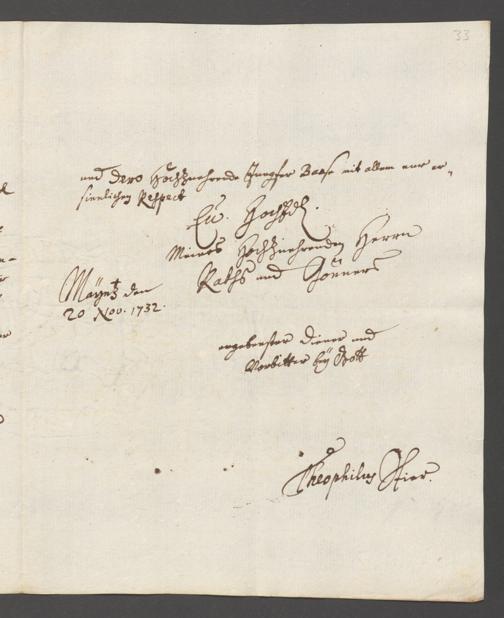 33
und dero Hochzuehrende Jungfer Baase mit allem nur er-
sinnlichen Respect
Eu. HochEdl.
Meines Hochzuehrenden Herrn
Raths und Gönners
Mäyntz den
20 Nov. 1732.
ergebenster Diener und
Vorbitter bey Gott
Theophilus